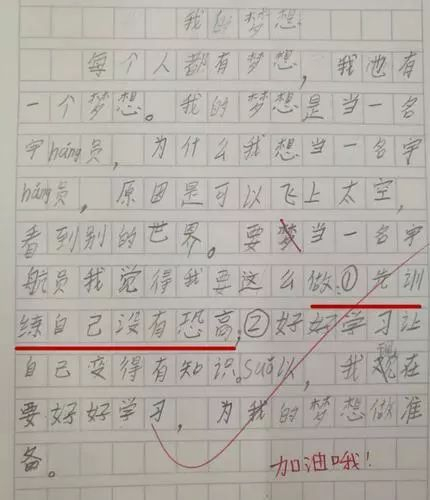 我的梦想
每个人都有梦想，我也有
一个梦想。我的梦想是当一名
宇háng员，为什么我想当一名宇
háng员，原因是可以飞上太空，
看到别的世界。要梦当一名宇
航员我觉得我要这么做：①先训
练自己没有恐高，②好好学习让
自己变得有知识。suǒ以，我现在
要好好学习，为我的梦想做准
备。
加油哦！